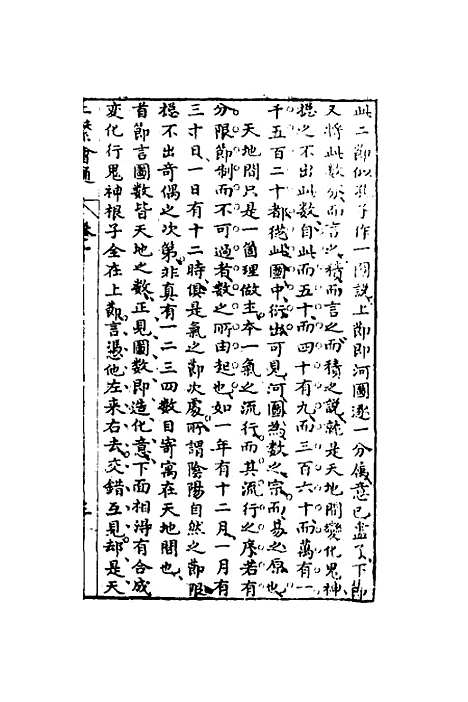 此二節似孔子作一圖說上節即河圖逐一分屬意已盡了下節
又將此數分而言之積而言之而積之說就是天地間變化鬼神
總之不出此數自此而五十而四十有九而三百六十而萬有一
千五百二十都從此圖中衍出可見河圖然數之宗而易之原也
天地間只是一箇理做主本一氣之流行而其流行之序若有
分限節制而不可過者數之所由起也如一年有十二月一月有
三十日一日有十二時俱是氣之節次處所謂陰陽自然之節限
總不出奇偶之次第非真有一二三四數目寄寓在天地間也
首節言圖數皆天地之數正見圖數即造化意下面相得有合成
變化行鬼神根子全在上節言憑他左來右去交錯互見却是天
繫會通 三